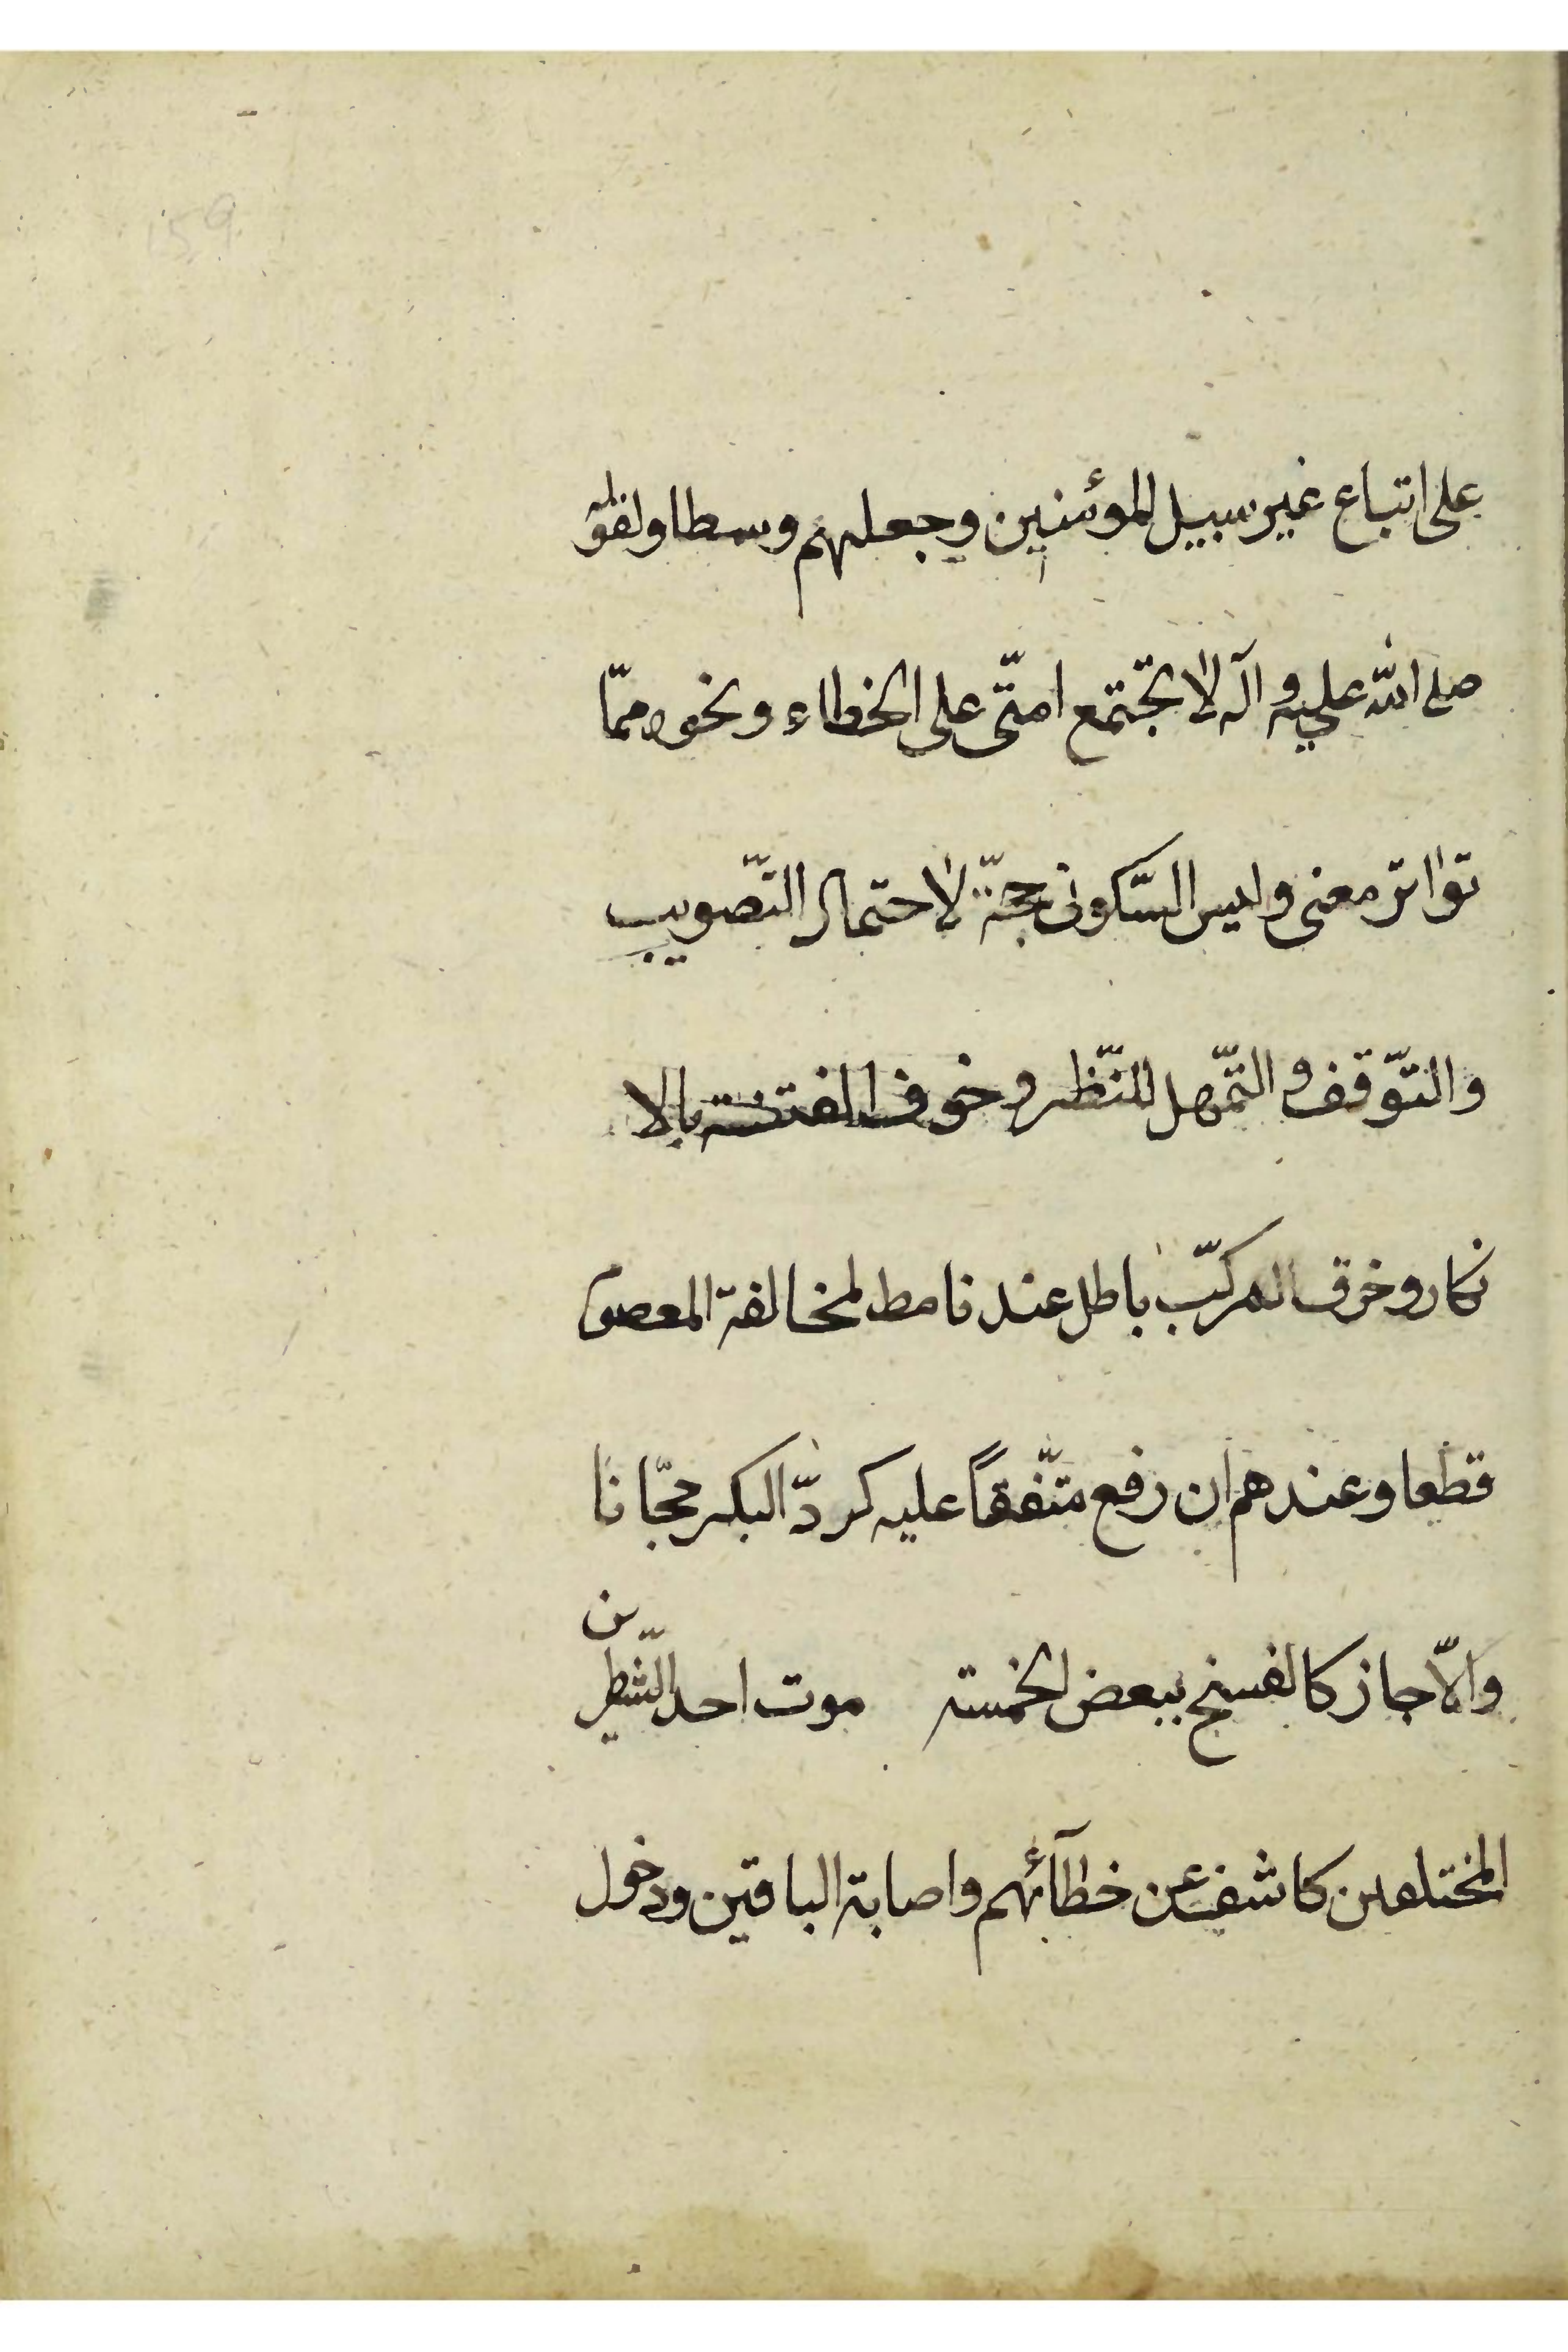 159
على اتباع غير سبيل المؤمنين وجعلهم وسطا ولقوله
صلى الله عليه وآله لا تجتمع امتّى على الخطاء ونحوه ممّا
تواتر معنى وليس السّكوتى بحجّة لاحتمال التّصويب
والتّوقف والتّمهل للنّظر وخوف الفتنة بالا
نكار وخرق المركّب باطل عندنا مط لمخالفة المعصوم
قطعا وعندهم ان رفع متّفقاً عليه كردّ البكر مجّانا
والّا جاز كالفسخ ببعض الخمسة موت احد الشّطرين
المختلفين كاشف عن خطآئهم واصابة الباقين ودخول